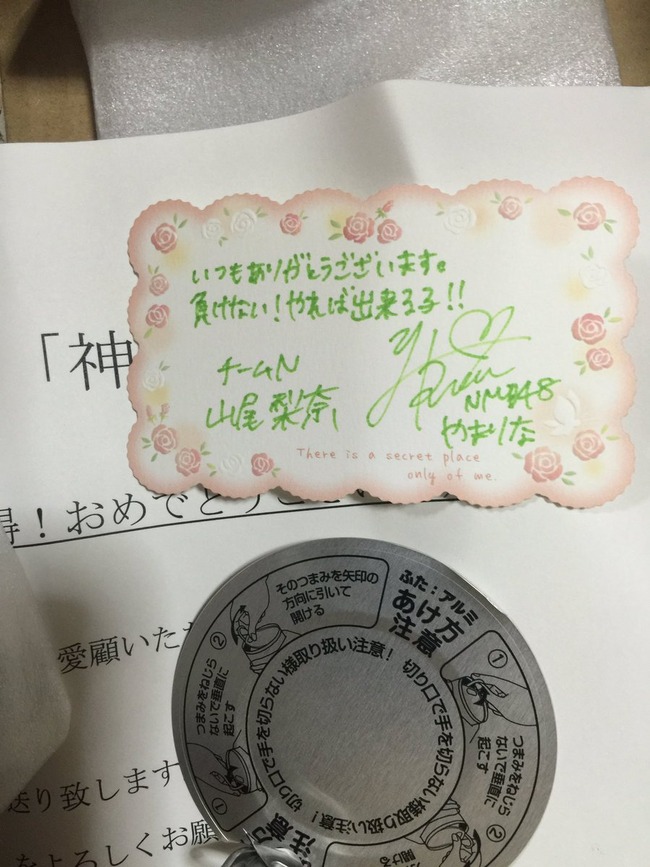 いつもありがとうございます。
負けない!やれば出来る子!!
チームN
山尾梨奈
NMB48
やまりな
There is a secret place
only of me.
「神
得！おめでとうござい
愛顧いただ
送り致します
をよろしくお願
ふた:アルミ
あけ方
注意
①
つまみをねじら
ないで垂直に
起こす
②
そのつまみを矢印の
方向に引いて
開ける
切り口で手を切らない様取り扱い注意!
切り口で手を切らない様取り扱い注意!
①
つまみをねじら
ないで垂直に
起こす
②
開ける
注意